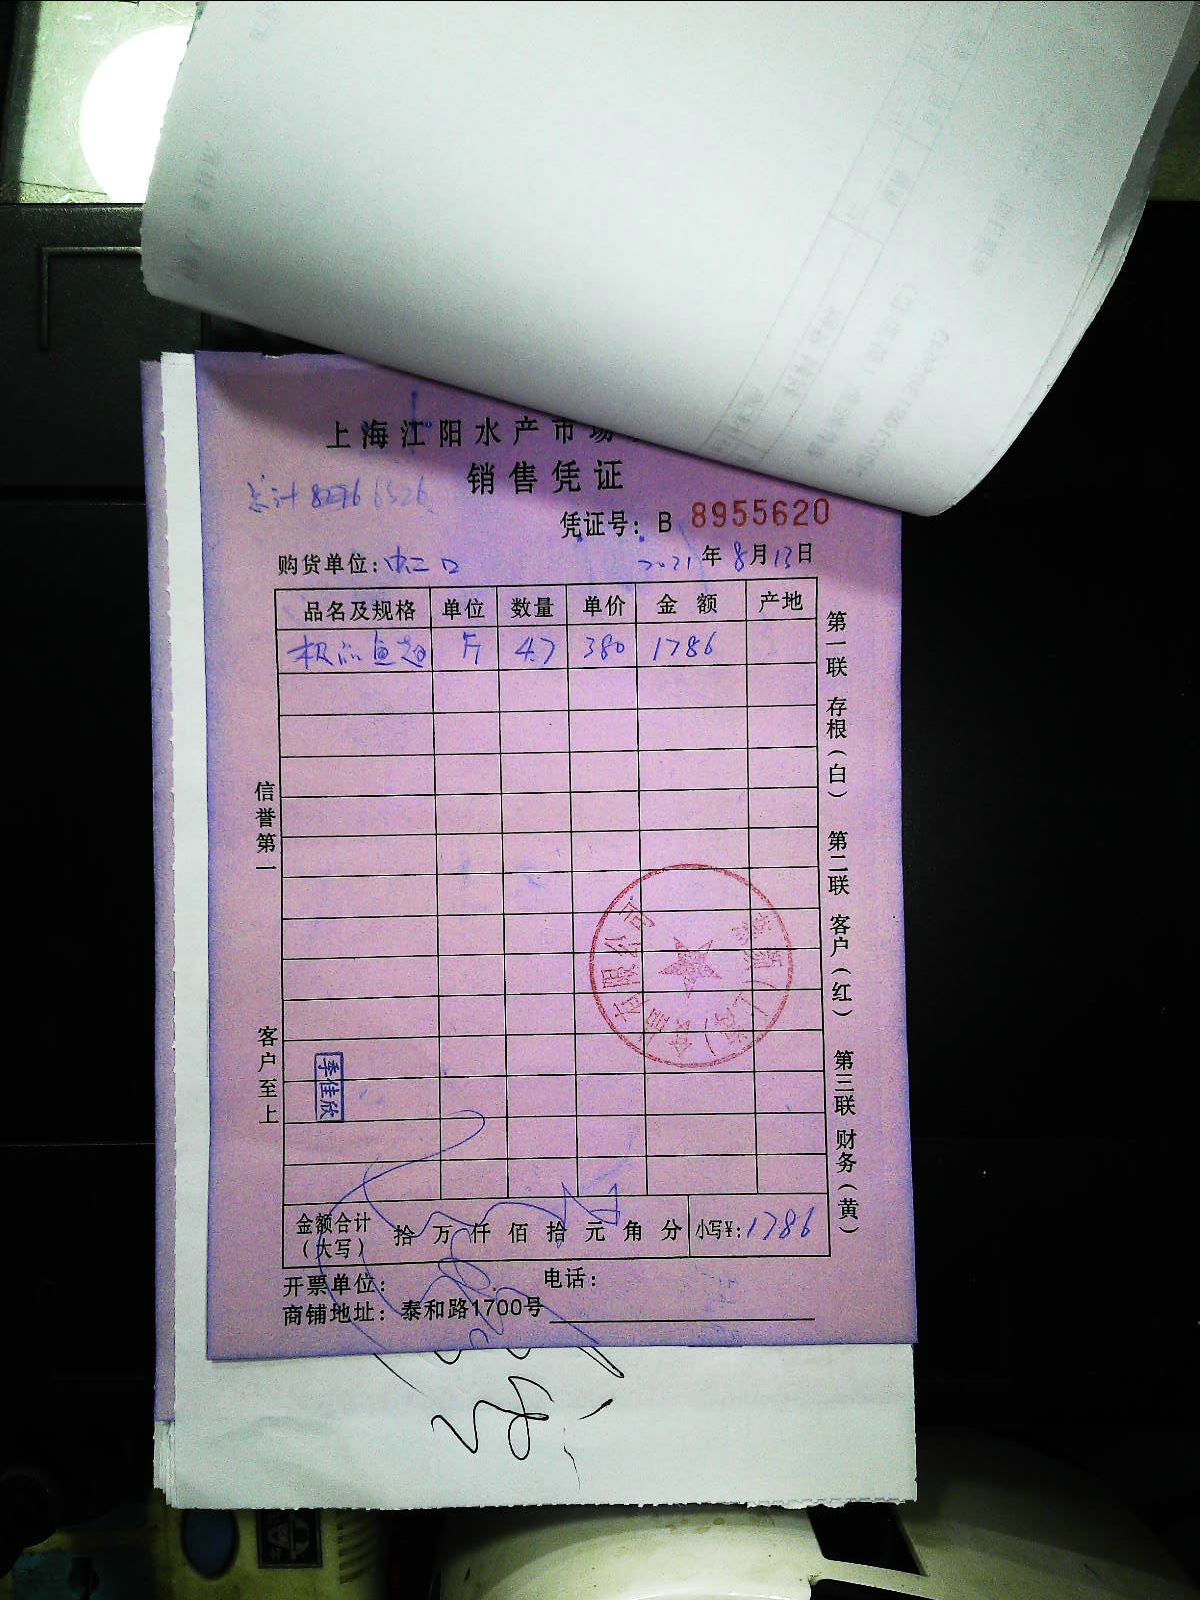 上海江阳水产市场
销售凭证
总计 6526
凭证号：B 8955620
购货单位：虹口 2021年8月13日
品名及规格 单位 数量 单价 金额 产地
极品鱼翅 斤 4.7 380 1786
信誉第一
客户至上
第一联 存根（白） 第二联 客户（红） 第三联 财务（黄）
有限公司
季佳欣
金额合计（大写） 拾 万 仟 佰 拾 元 角 分 小写¥：1786
开票单位： 电话：
商铺地址：泰和路1700号